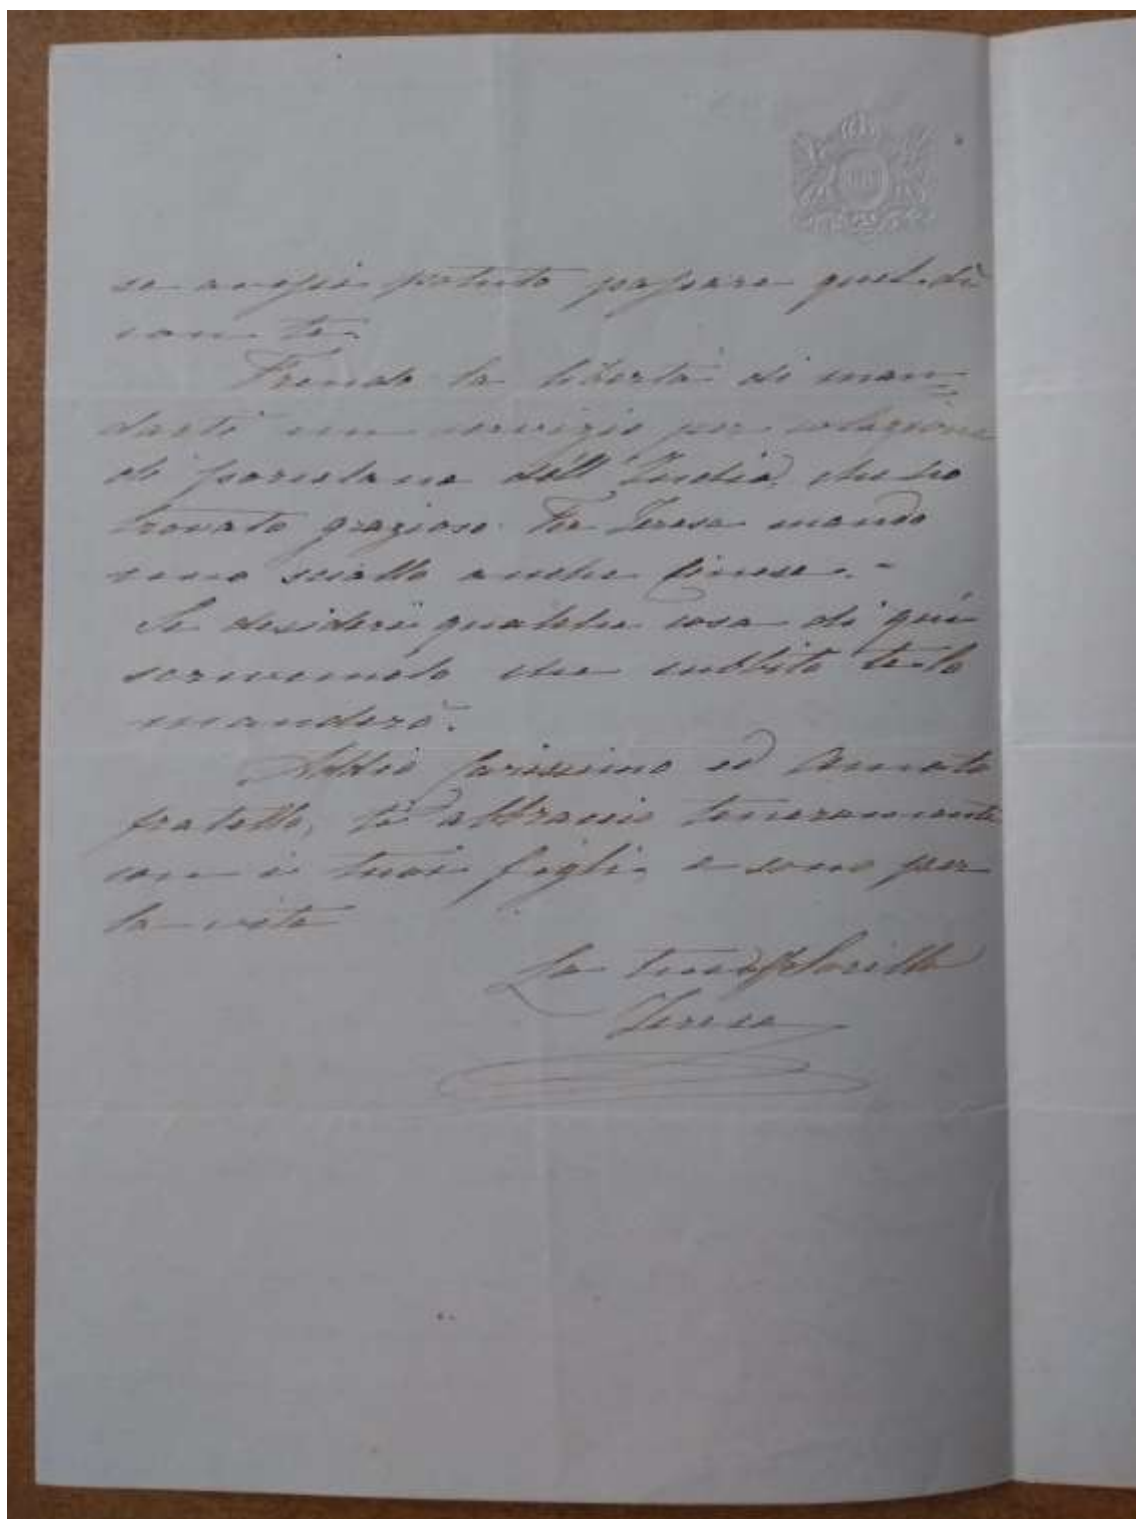 se avessi potuto passare quel dì
con te.
Prendo la libertà di man-
darti un servizio per colazione
di porcelana dell'India, che ho
trovato grazioso. Per Teresa mando
uno sciallo anche Cinese. -
Se desideri qualche cosa di quì
scrivemelo che subbito te lo
manderò.
Addio Carissimo ed Amato
fratello, ti abbraccio teneramente
con i tuoi figli, e sono per
la vita
La tua Sorella
Teresa